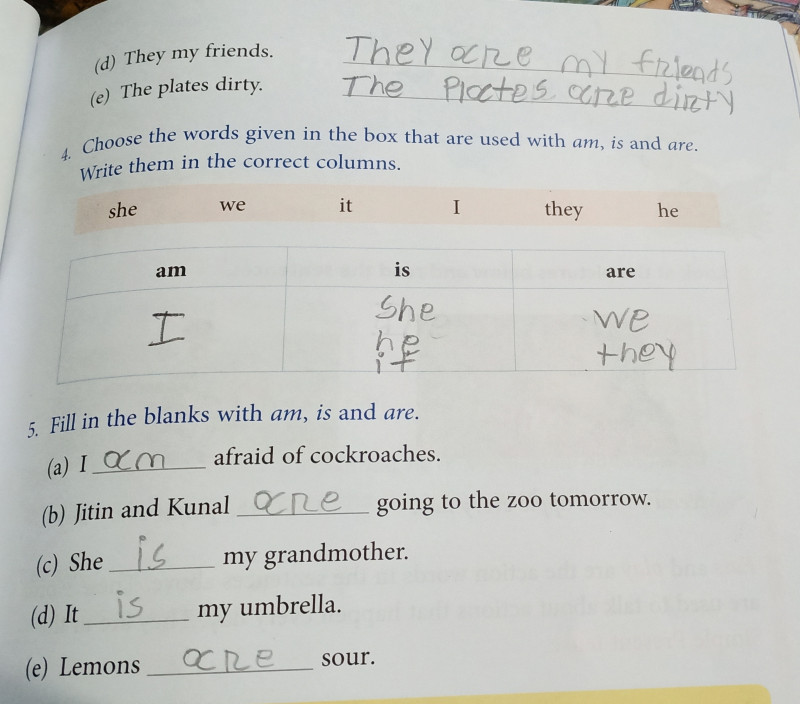 (d) They my friends. They are my friends
(e) The plates dirty. The Plates are dirty
4. Choose the words given in the box that are used with am, is and are.
Write them in the correct columns.
she we it I they he
am is are
I she we
he they
it
5. Fill in the blanks with am, is and are.
(a) I am afraid of cockroaches.
(b) Jitin and Kunal are going to the zoo tomorrow.
(c) She is my grandmother.
(d) It is my umbrella.
(e) Lemons are sour.